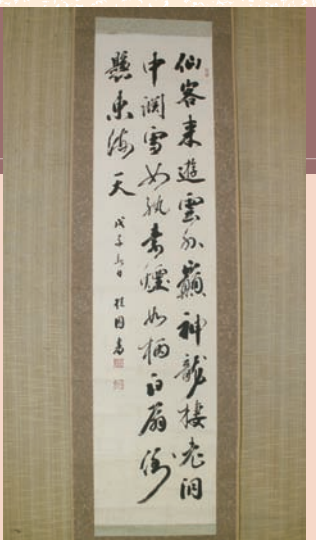 仙客来遊雲外巓神龍棲老洞
中淵雪如紈素煙如柄白扇倒
懸東海天
戊子
書